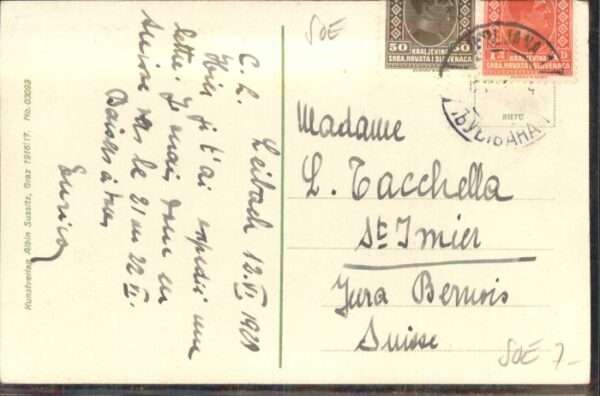 C. L. Laibach 12.VI 1928
Hier je t'ai expédié une
lettre. Je serai donc en
Suisse vers le 21 ou 22 VI.
Baisers à tous
Enrico
Kunstverlag Albin Sussitz, Graz 1916/17. No. 03093
SOE
50 50
KRALJEVINA
SRBA, HRVATA I SLOVENACA
1 D
KRALJEVINA
SRBA, HRVATA I SLOVENACA
LJUBLJANA
ЉУБЉАНА
Madame
L. Tacchella
St Imier
Jura Bernois
Suisse
SOE 7-